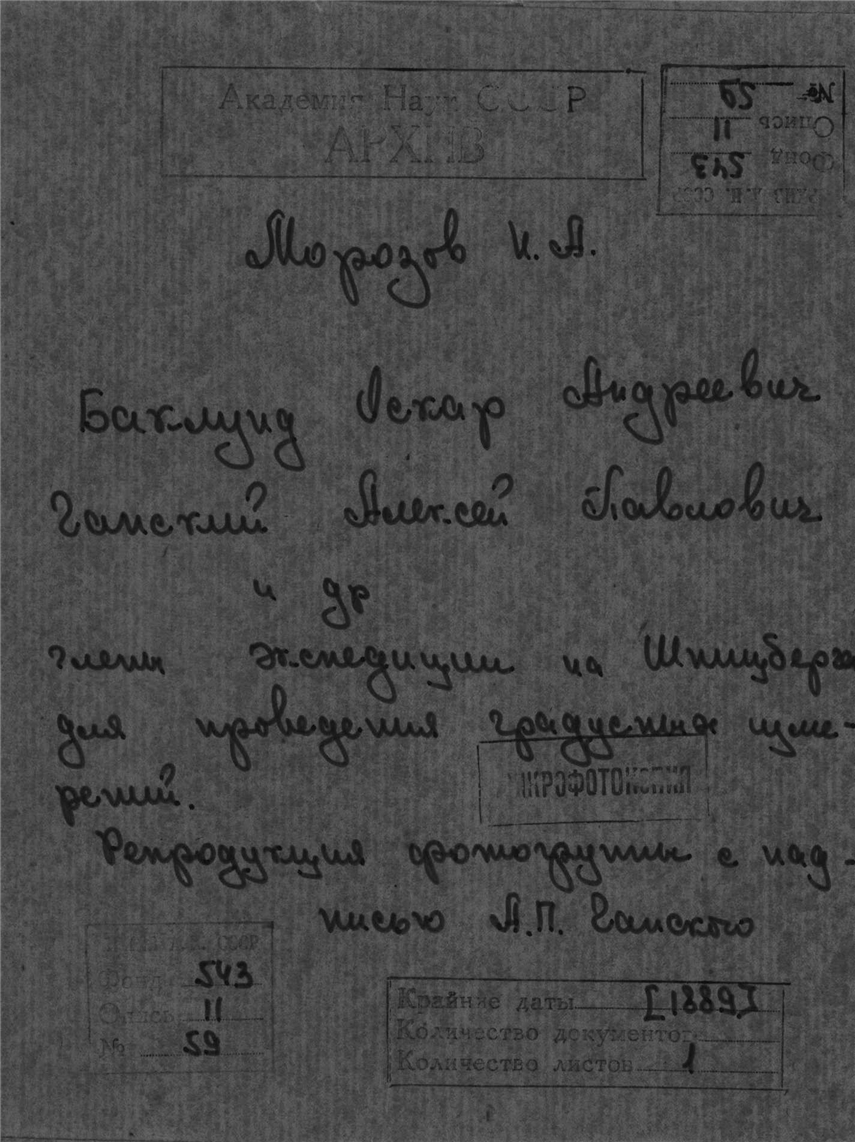 Академия Наук СССР
АРХИВ
№ 59
Опись 11
Фонд 543
Морозов Н. А.
Баклунд Оскар Андреевич
Ганский Алексей Павлович
и др
члены экспедиции на Шпицберген
для проведения градусных изме-
рений.
МИКРОФОТОКОПИЯ
Репродукция фотогруппы с над-
писью А.П. Ганского
Фонд 543
Опись 11
№ 59
Крайние даты [1889]
Количество документов
Количество листов 1